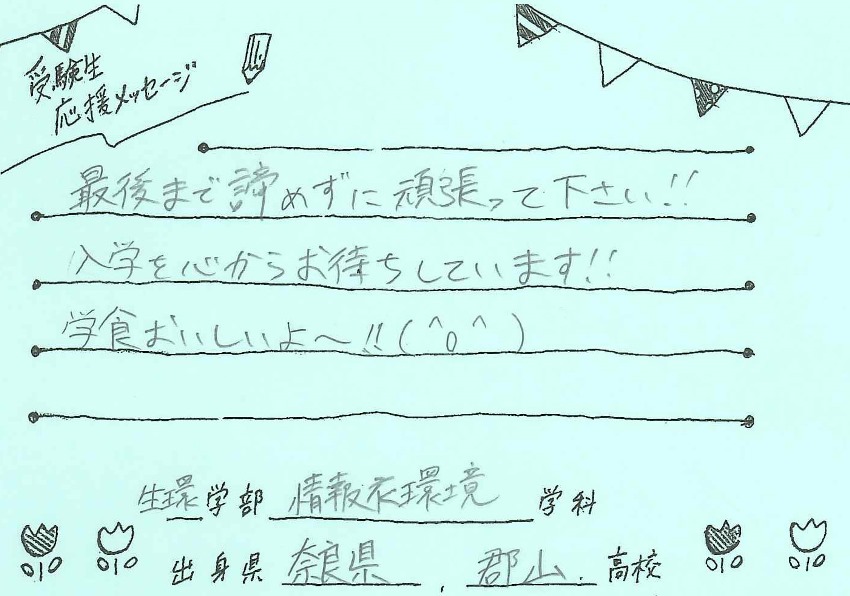 受験生
応援メッセージ
最後まで諦めずに頑張って下さい!!
入学を心からお待ちしています!!
学食おいしいよ〜!!(^o^)
生環学部 情報衣環境 学科
出身県 奈良県 , 郡山 . 高校